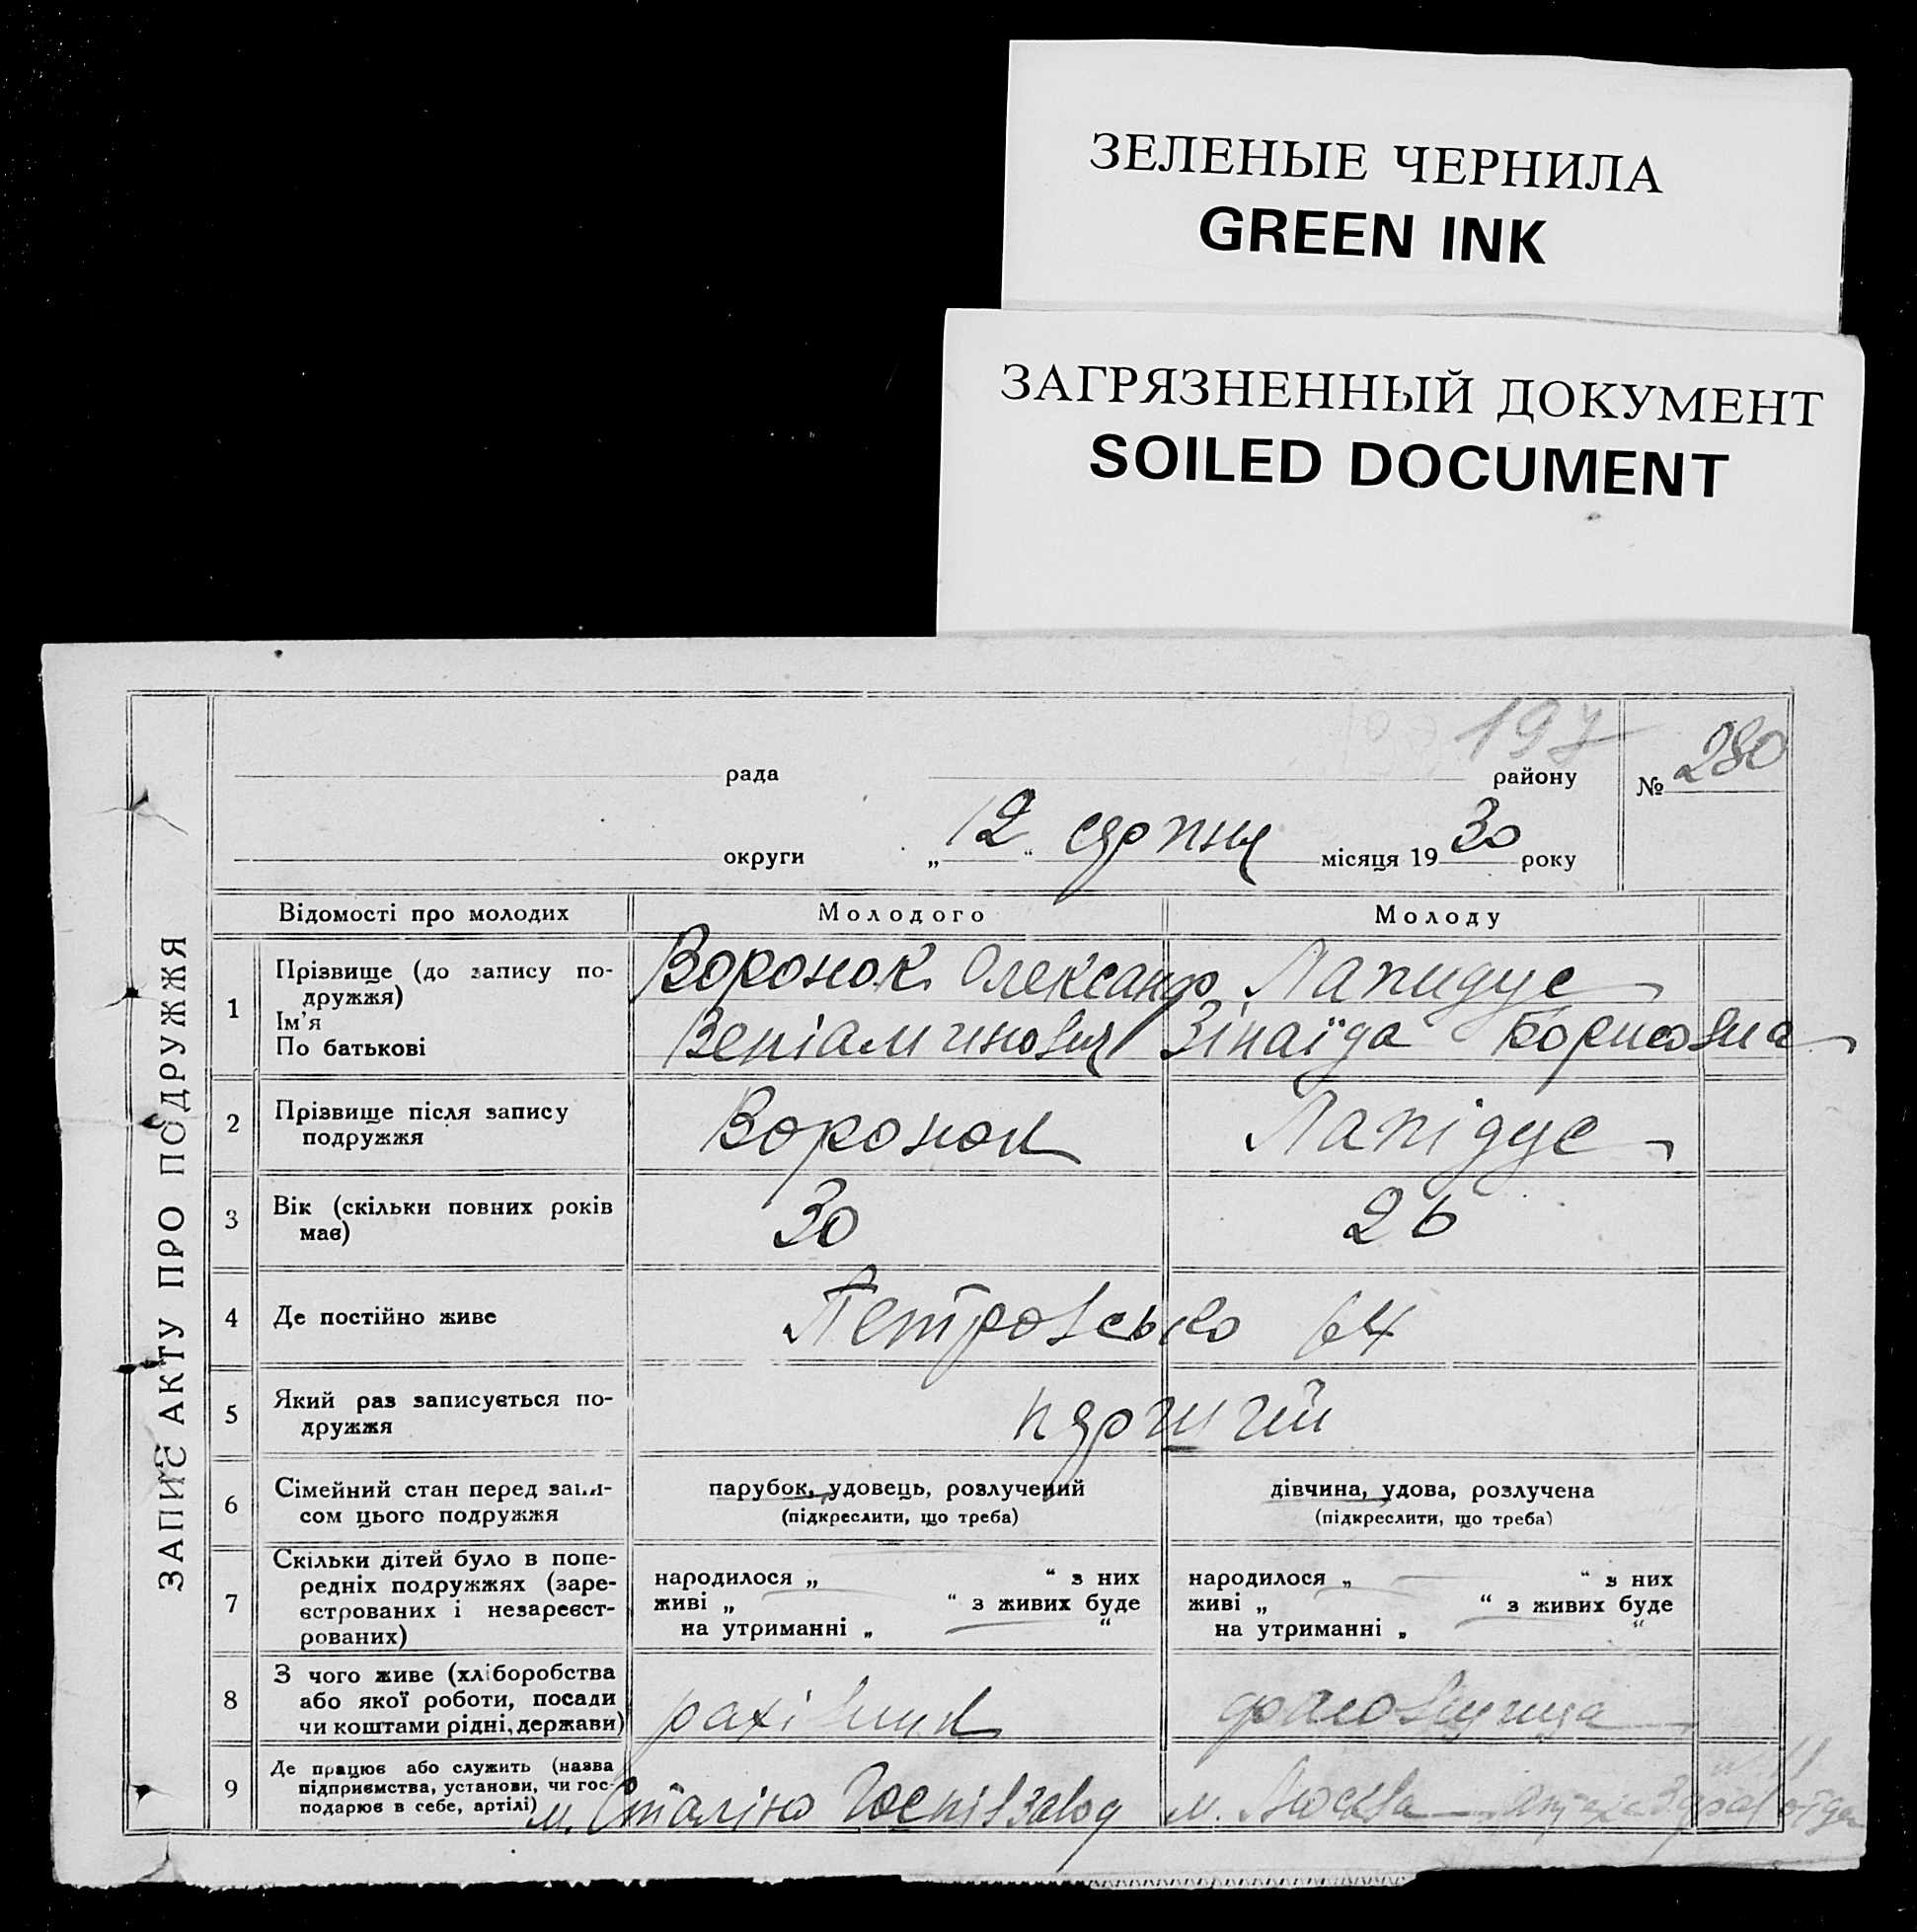 ЗЕЛЕНЫЕ ЧЕРНИЛА
GREEN INK
ЗАГРЯЗНЕННЫЙ ДОКУМЕНТ
SOILED DOCUMENT
ЗАПИС АКТУ ПРО ПОДРУЖЖЯ
197
рада району № 280
округи „12“ серпня місяця 1930 року
Відомості про молодих Молодого Молоду
1 Прізвище (до запису по-
дружжя)
Ім'я
По батькові
Воронок Олександр
Веніаминович
Лапидус
Зінаїда Борисовна
2 Прізвище після запису
подружжя
Воронок Лапідус
3 Вік (скільки повних років
має)
30 26
4 Де постійно живе Петровсько 64
5 Який раз записується по-
дружжя
перший
6 Сімейний стан перед запи-
сом цього подружжя
парубок, удовець, розлучений
(підкреслити, що треба)
дівчина, удова, розлучена
(підкреслити, що треба)
7 Скільки дітей було в попе-
редніх подружжях (заре-
єстрованих і незареєст-
рованих)
народилося „ “ з них
живі „ “ з живих буде
на утриманні „ “
народилося „ “ з них
живі „ “ з живих буде
на утриманні „ “
8 З чого живе (хліборобства
або якої роботи, посади
чи коштами рідні, держави)
рахівник
9 Де працює або служить (назва
підприємства, установи, чи гос-
подарює в себе, артілі)
м. Сталіно
м. Москва